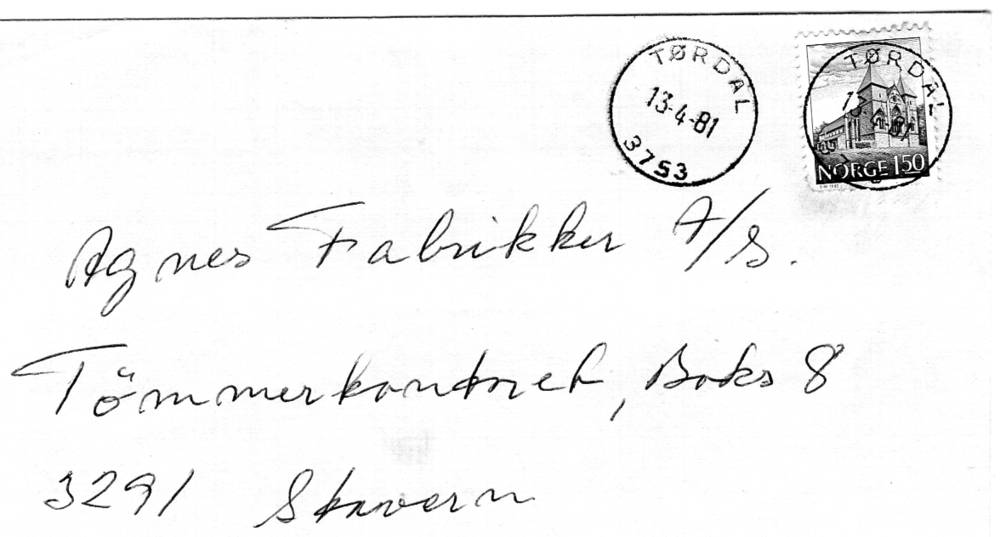 TØRDAL
13-4-81
3753
TØRDAL
13-4-81
NORGE 150
Agnes Fabrikker A/S.
Tömmerkontoret, Boks 8
3291 Stavern